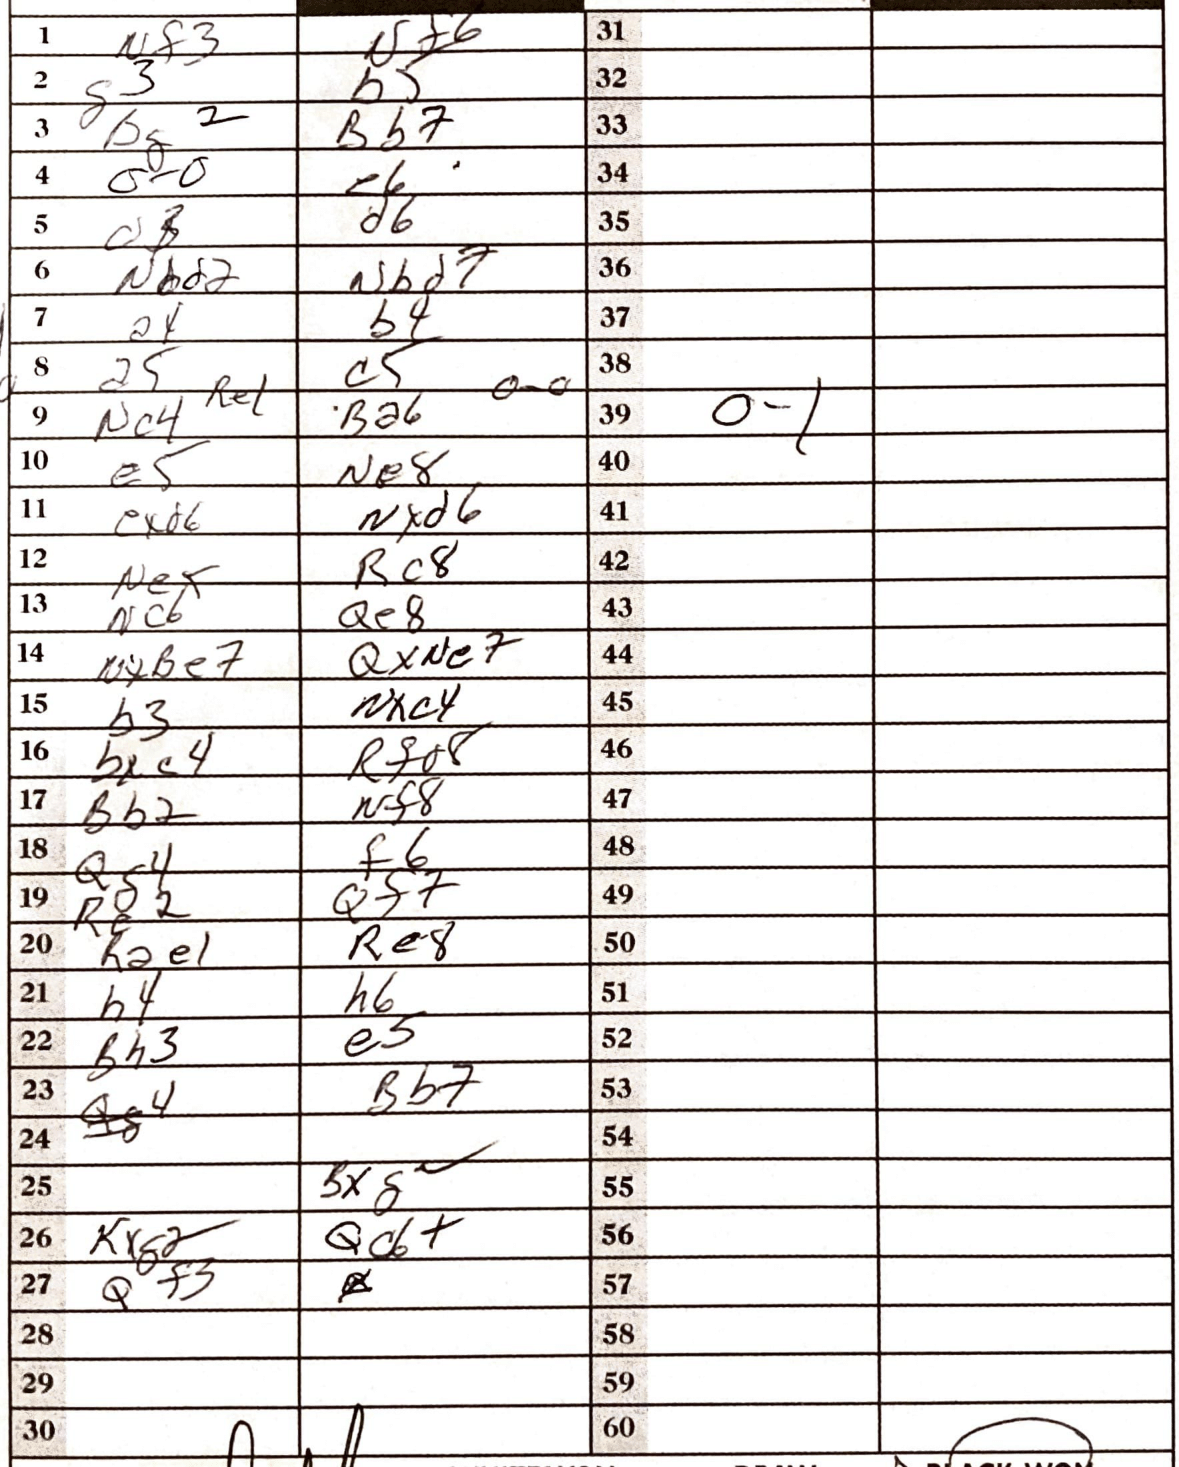 1 Nf3 Nf6 31
2 g3 b5 32
3 Bg2 Bb7 33
4 0-0 e6 34
5 d3 d6 35
6 Nbd2 Nbd7 36
7 a4 b4 37
8 a5 c5 38
Re1 0-0
9 Nc4 Ba6 39 0-1
10 e5 Ne8 40
11 exd6 Nxd6 41
12 Ne5 Rc8 42
13 Nc6 Qe8 43
14 NxBe7 QxNe7 44
15 b3 Nxc4 45
16 bxc4 Rfd8 46
17 Bb2 Nf8 47
18 Qg4 f6 48
19 Re2 Qf7 49
20 Rae1 Re8 50
21 h4 h6 51
22 Bh3 e5 52
23 Qg4 Bb7 53
24 54
25 Bxg2 55
26 Kxg2 Qc6+ 56
27 Qf3 57
28 58
29 59
30 60
DRAW BLACK WON